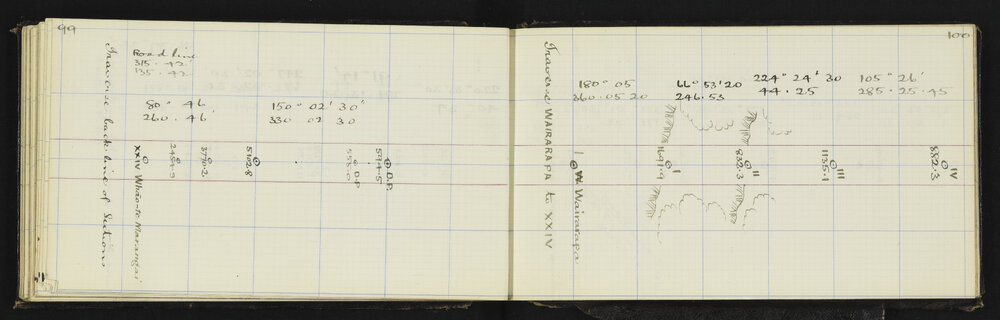 99
Traverse back line of Sections
Road line
315 . 42
135 . 42
80° 46
260 . 46'
150° 02' 30"
330 02 30
XXIV Whao-te Marangai
3790.2
5102.8
553.0 D.P.
594.5 D.P.
100
Traverse WAIRARAPA to XXIV
180° 05
360.05 20
66° 53' 20
246.53
224° 24' 30
44 . 25
105° 26'
285 . 25 . 45
W Wairarapa
1691.9 I
832.3 II
1135.1 III
882.3 IV